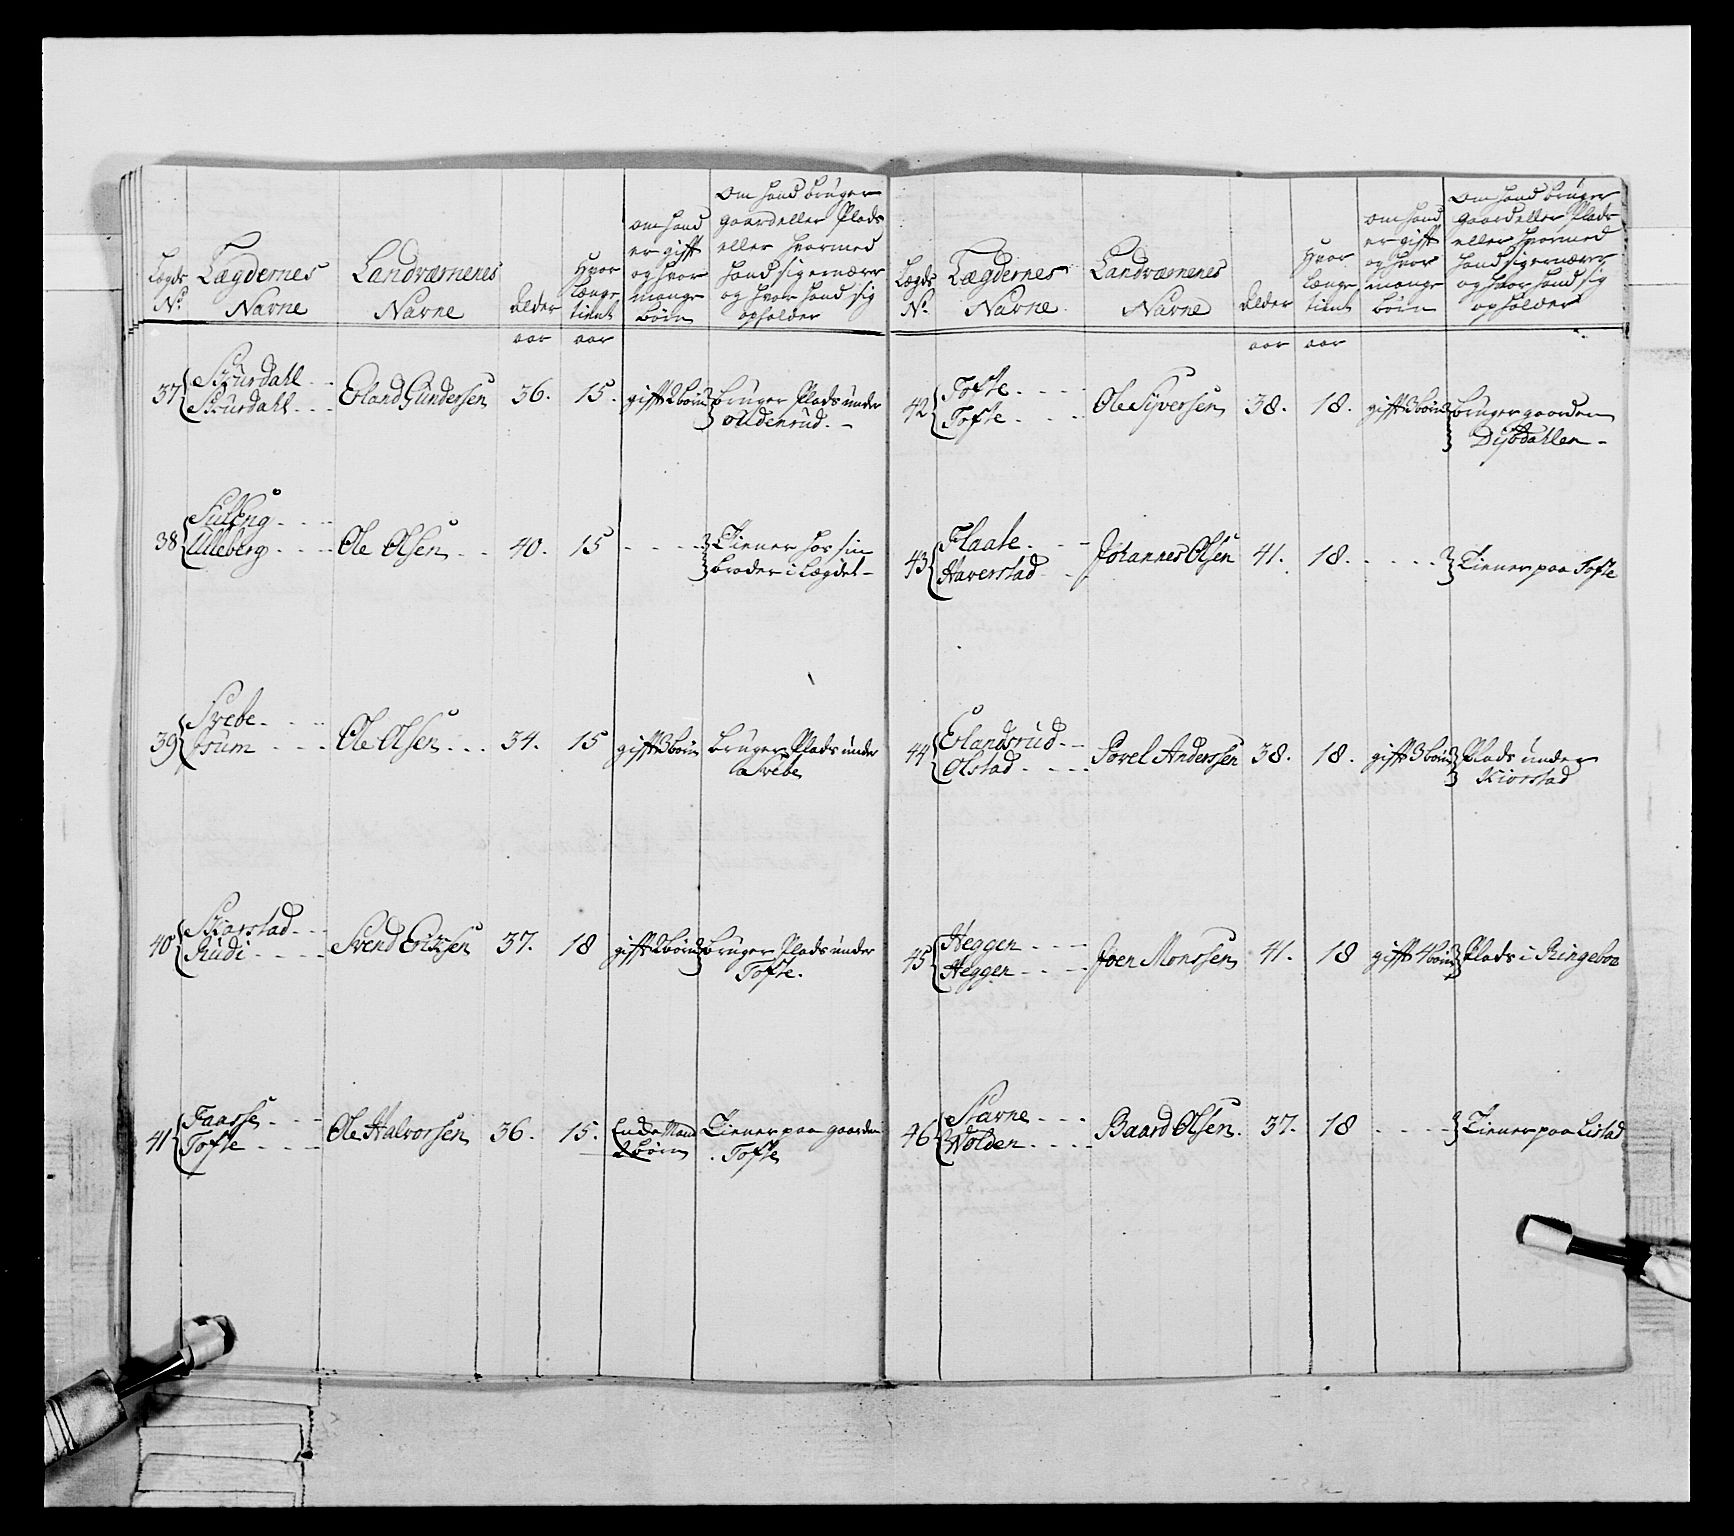 Lægds No.
Lægdernes Navne
Landværnenes Navne
Alder
Hvor Længe tient
om hand er gift og hvor mange børn
om hand bruger gaard eller Plads eller hvormed hand sig ernærer og hvor hand sig opholder
aar aar
37 Skurdahl Skurdahl
Erland Gundersen 36. 15. gift 2 børn bruger Plads under
38 Ulleberg
Ole Olsen 40. 15 Tiener hos sin broder i Lægdet
39 Svebe Isum
Ole Olsen 34. 15 gift 3 børn bruger Plads under Svebe
40 Skarstad Rudi
Svend Ericksen 37. 18 gift 2 børn bruger Plads under Tofte.
41 Faasse Tofte
Ole Halvorsen 36. 15. Enke Mand 2 børn Tiener paa gaarden Tofte
Lægds No.
Lægdernes Navne
Landværnenes Navne
Alder
Hvor længe tient
om hand er gift og hvor mange børn
om hand bruger gaard eller Plads eller hvormed hand sig ernærer og hvor hand sig opholder
aar aar
42 Tofte Tofte
Ole Syversen 38. 18. gift 3 børn bruger gaarden
43 Flaate Haverstad
Johannes Olsen 41. 18. Tiener paa Tofte
44 Erlandsrud Olstad
Povel Anderssen 38. 18. gift 3 børn Plads under Kiorstad
45 Heggen Heggen
Joen Monssen 41. 18 gift 4 børn Plads i Ringeboe
46 Stavne Wolden
Baard Olsen. 37. 18 Tiener paa Listad